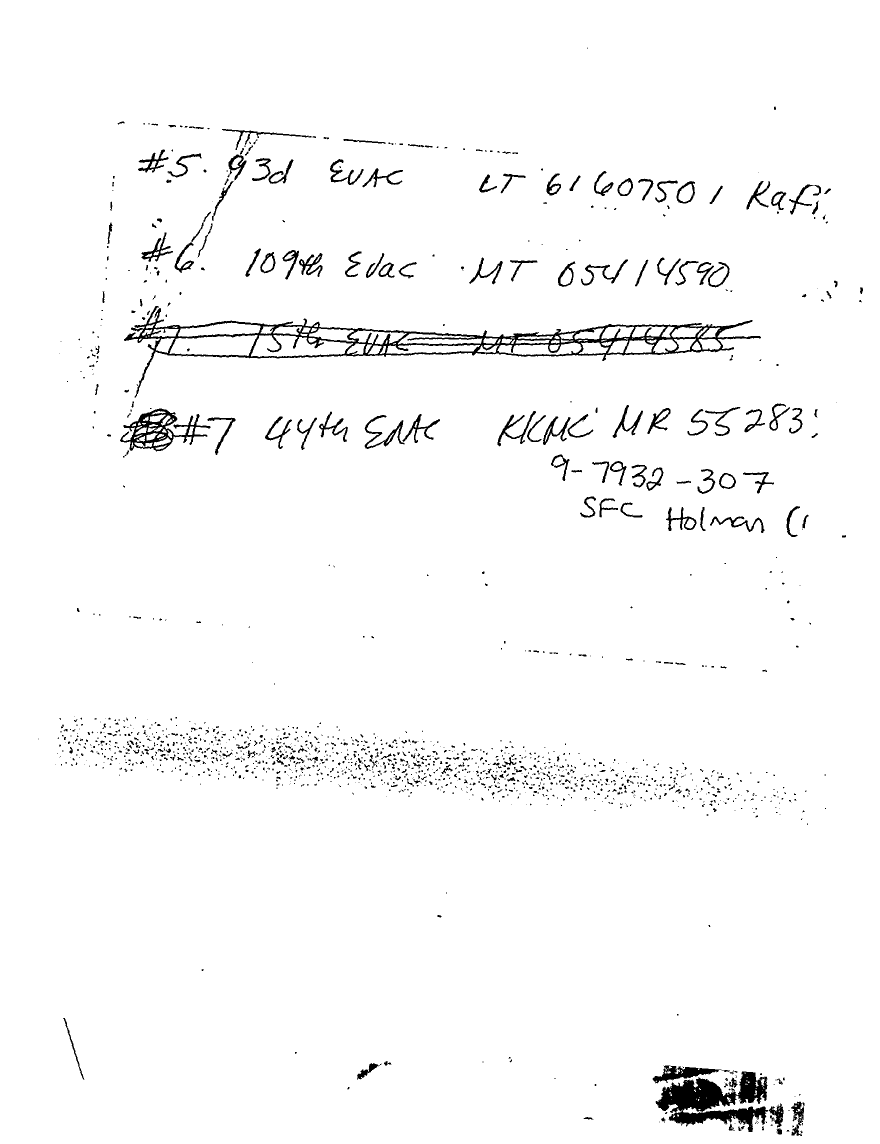 #5. 93d EVAC LT 61607501 Rafi
#6. 109th Evac MT 05414590
#7. 15th EVAC MT 05414585
#7 44th EVAC KKMC MR 55283
9-7932-307
SFC Holman (